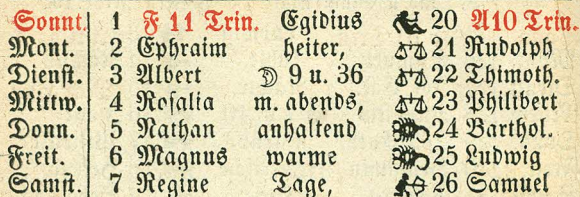 Sonnt. 1 F 11 Trin. Egidius 20 A10 Trin.
Mont. 2 Ephraim heiter, 21 Rudolph
Dienst. 3 Albert ☽ 9 u. 36 22 Thimoth.
Mittw. 4 Rosalia m. abends, 23 Philibert
Donn. 5 Nathan anhaltend 24 Barthol.
Freit. 6 Magnus warme 25 Ludwig
Samst. 7 Regine Tage, 26 Samuel